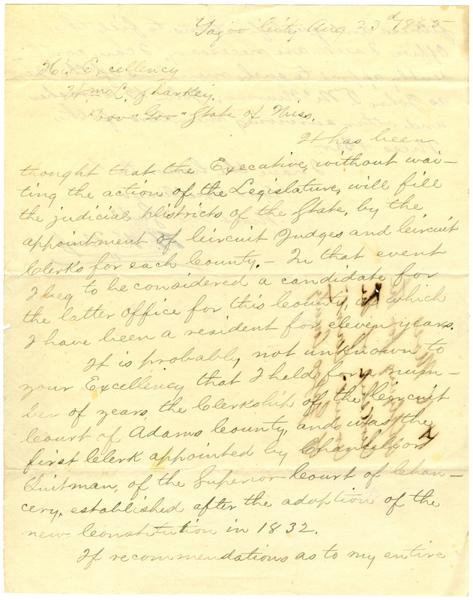 Yazoo City, Aug 23d 1865
His Excellency
Wm L. Sharkey,
Prov. Gov. State of Miss.
It has been
thought that the Executive, without wai-
ting the action of the Legislature, will fill
the judicial Districts of the State, by the
appointment of Circuit Judges and Circuit
Clerks for each County. - In that event
I beg to be considered a candidate for
the latter office for this County, of which
I have been a resident for eleven years.
It is probably, not unknown to
your Excellency that I held for a num-
ber of years, the Clerkship of the Circuit
Court of Adams County, and was the
first Clerk appointed by Chancellor
Quitman, of the Superior Court of Chan-
cery, established after the adoption of the
new Constitution in 1832.
If recommendations as to my entire